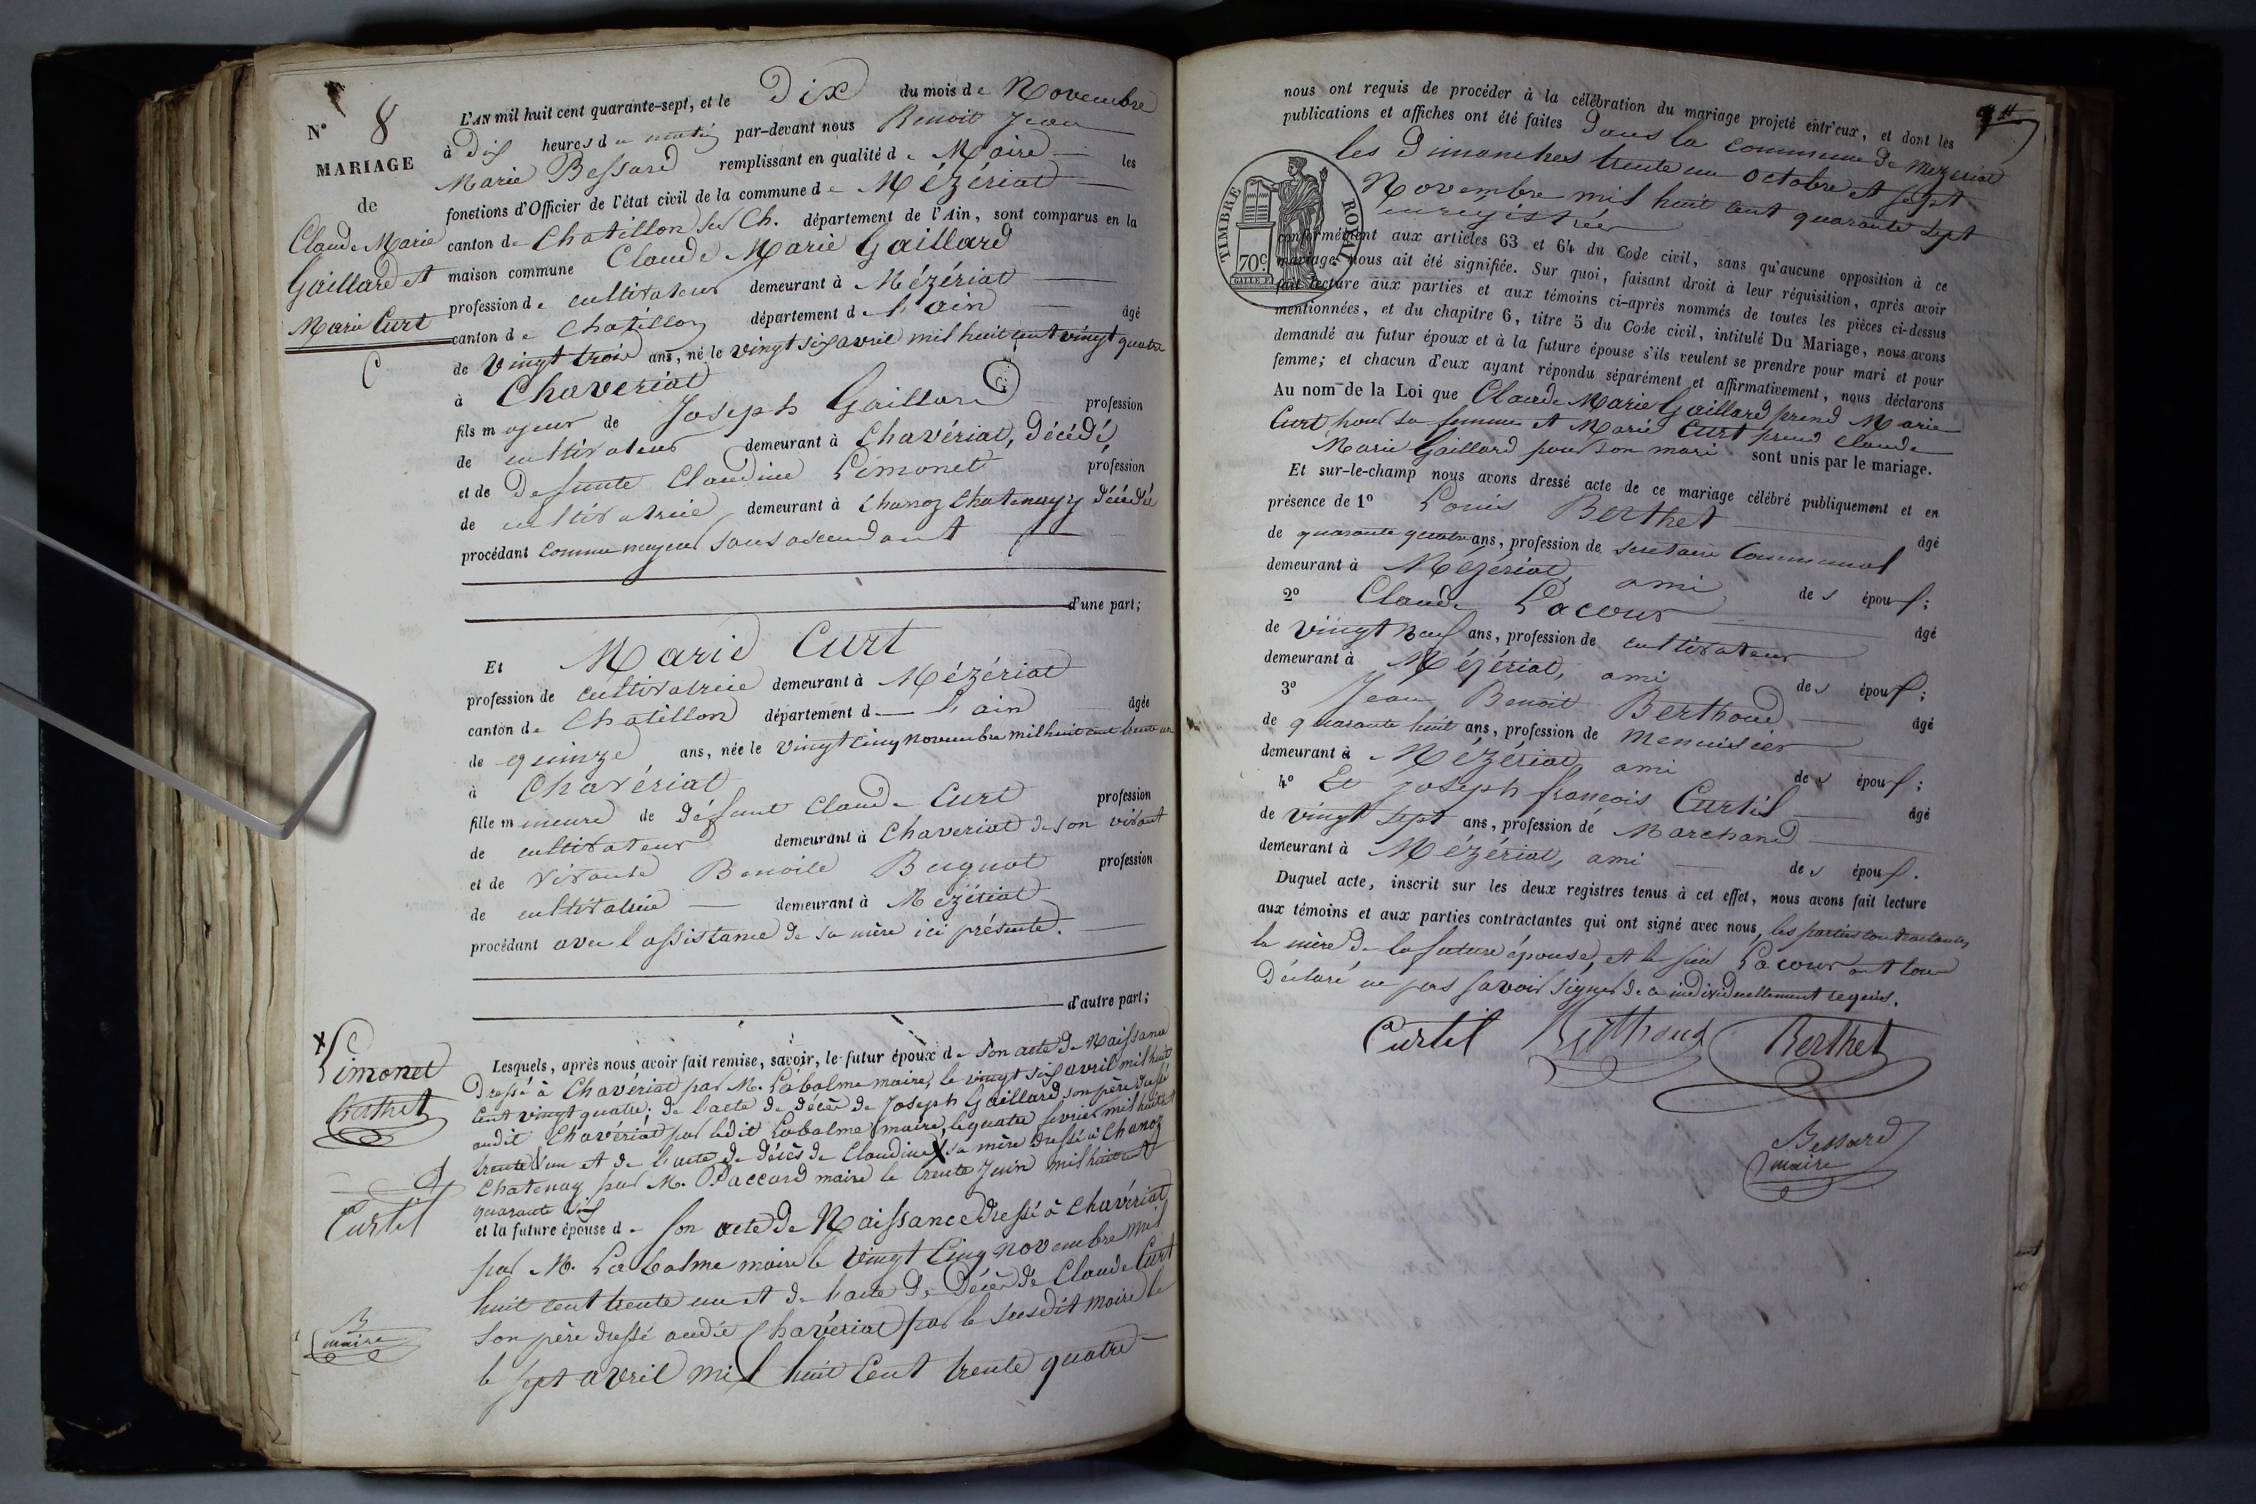 N° 8
MARIAGE
de
Claude Marie
Gaillard et
Marie Curt
L'AN mil huit cent quarante-sept, et le Dix du mois de Novembre
à Dix heures du matin par-devant nous Benoit Jean
Marie Bessard remplissant en qualité de Maire les
fonctions d'Officier de l'état civil de la commune de Mézériat
canton de Chatillon sur Ch. département de l'Ain, sont comparus en la
maison commune Claude Marie Gaillard
profession de cultivateur demeurant à Mézériat
canton de Chatillon département de l'ain âgé
de Vingt trois ans, né le vingt six avril mil huit cent vingt quatre
à Chaveriat
fils majeur de Joseph Gaillard profession
de cultivateur demeurant à Chavériat, décédé,
et de Defunte Claudine Limonet profession
de cultivatrice, demeurant à Chanoz Chatenay y décédée
procédant comme majeur sans ascendant
d'une part;
Et Marie Curt
profession de cultivatrice demeurant à Mézériat
canton de Chatillon département de l'ain âgée
de quinze ans, née le vingt cinq novembre mil huit cent trente un
à Chavériat
fille mineure de défunt Claude Curt profession
de cultivateur demeurant à Chaveriat de son vivant
et de vivante Benoite Buguot profession
de cultivatrice demeurant à Mézériat
procédant avec l'assistance de sa mère ici présente.
d'autre part;
Lesquels, après nous avoir fait remise, savoir, le futur époux de Son acte de Naissance
Dressé à Chavériat par M. Labalme maire, le vingt six avril mil huit
cent vingt quatre; de l'acte de décès de Joseph Gaillard son père dressé
audit Chavériat par ledit Labalme maire, le quatre fevrier mil huit cent
trente un et de l'acte de décès de Claudine X sa mère dressé à Chanoz
Chatenay par M. Paccard maire le trente Juin mil huit cent
quarante six
et la future épouse de son acte de Naissance dressé à Chavériat
par M. Labalme maire le vingt Cinq novembre mil
huit cent trente un et de l'acte de Décès de Claude Curt
son père dressé audit Chavériat par le susdit maire le
le sept avril mil huit Cent trente quatre
X Limonet
Berthet
Curtil
B
maire
nous ont requis de procéder à la célébration du mariage projeté entr'eux, et dont les
publications et affiches ont été faites Dans la commune de Mezeriat
les Dimanches trente un octobre et sept
Novembre mil huit cent quarante sept
enregistrées
TIMBRE ROYAL
70c.
conformément aux articles 63 et 64 du Code civil, sans qu'aucune opposition à ce
mariage nous ait été signifiée. Sur quoi, faisant droit à leur réquisition, après avoir
fait lecture aux parties et aux témoins ci-après nommés de toutes les pièces ci-dessus
mentionnées, et du chapitre 6, titre 5 du Code civil, intitulé Du Mariage, nous avons
demandé au futur époux et à la future épouse s'ils veulent se prendre pour mari et pour
femme; et chacun d'eux ayant répondu séparément et affirmativement, nous déclarons
Au nom de la Loi que Claude Marie Gaillard prend Marie
Curt pour sa femme et Marie Curt prend Claude
Marie Gaillard pour son mari sont unis par le mariage.
Et sur-le-champ nous avons dressé acte de ce mariage célébré publiquement et en
présence de 1° Louis Berthet âgé
de quarante quatre ans, profession de secretaire Communal
demeurant à Mézériat, ami des époux;
2° Claude Lacour âgé
de vingt neuf ans, profession de cultivateur
demeurant à Mézériat, ami des époux;
3° Jean Benoit Berthoud âgé
de quarante huit ans, profession de Menuisier
demeurant à Mézériat, ami des époux;
4° Et Joseph françois Curtil âgé
de vingt sept ans, profession de Marchand
demeurant à Mézériat, ami des époux.
Duquel acte, inscrit sur les deux registres tenus à cet effet, nous avons fait lecture
aux témoins et aux parties contractantes qui ont signé avec nous, les parties contractantes,
la mère de la future épouse, et le sieur Lacour ont tous
Déclaré ne pas savoir signer de ce individuellement requis.
Curtil Berthoud Berthet
Bessard
maire